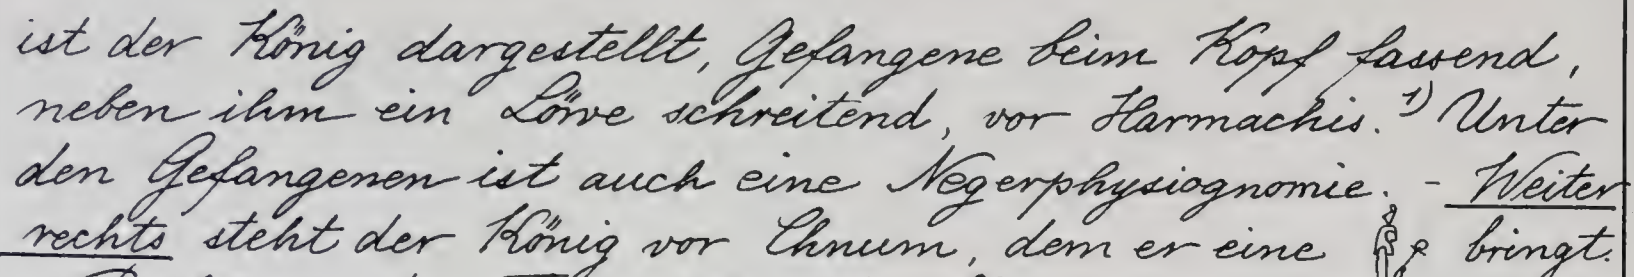 ist der König dargestellt, Gefangene beim Kopf fassend,
neben ihm ein Löwe schreitend, vor Harmachis.¹) Unter
den Gefangenen ist auch eine Negerphysiognomie. - Weiter
rechts steht der König vor Chnum, dem er eine bringt.